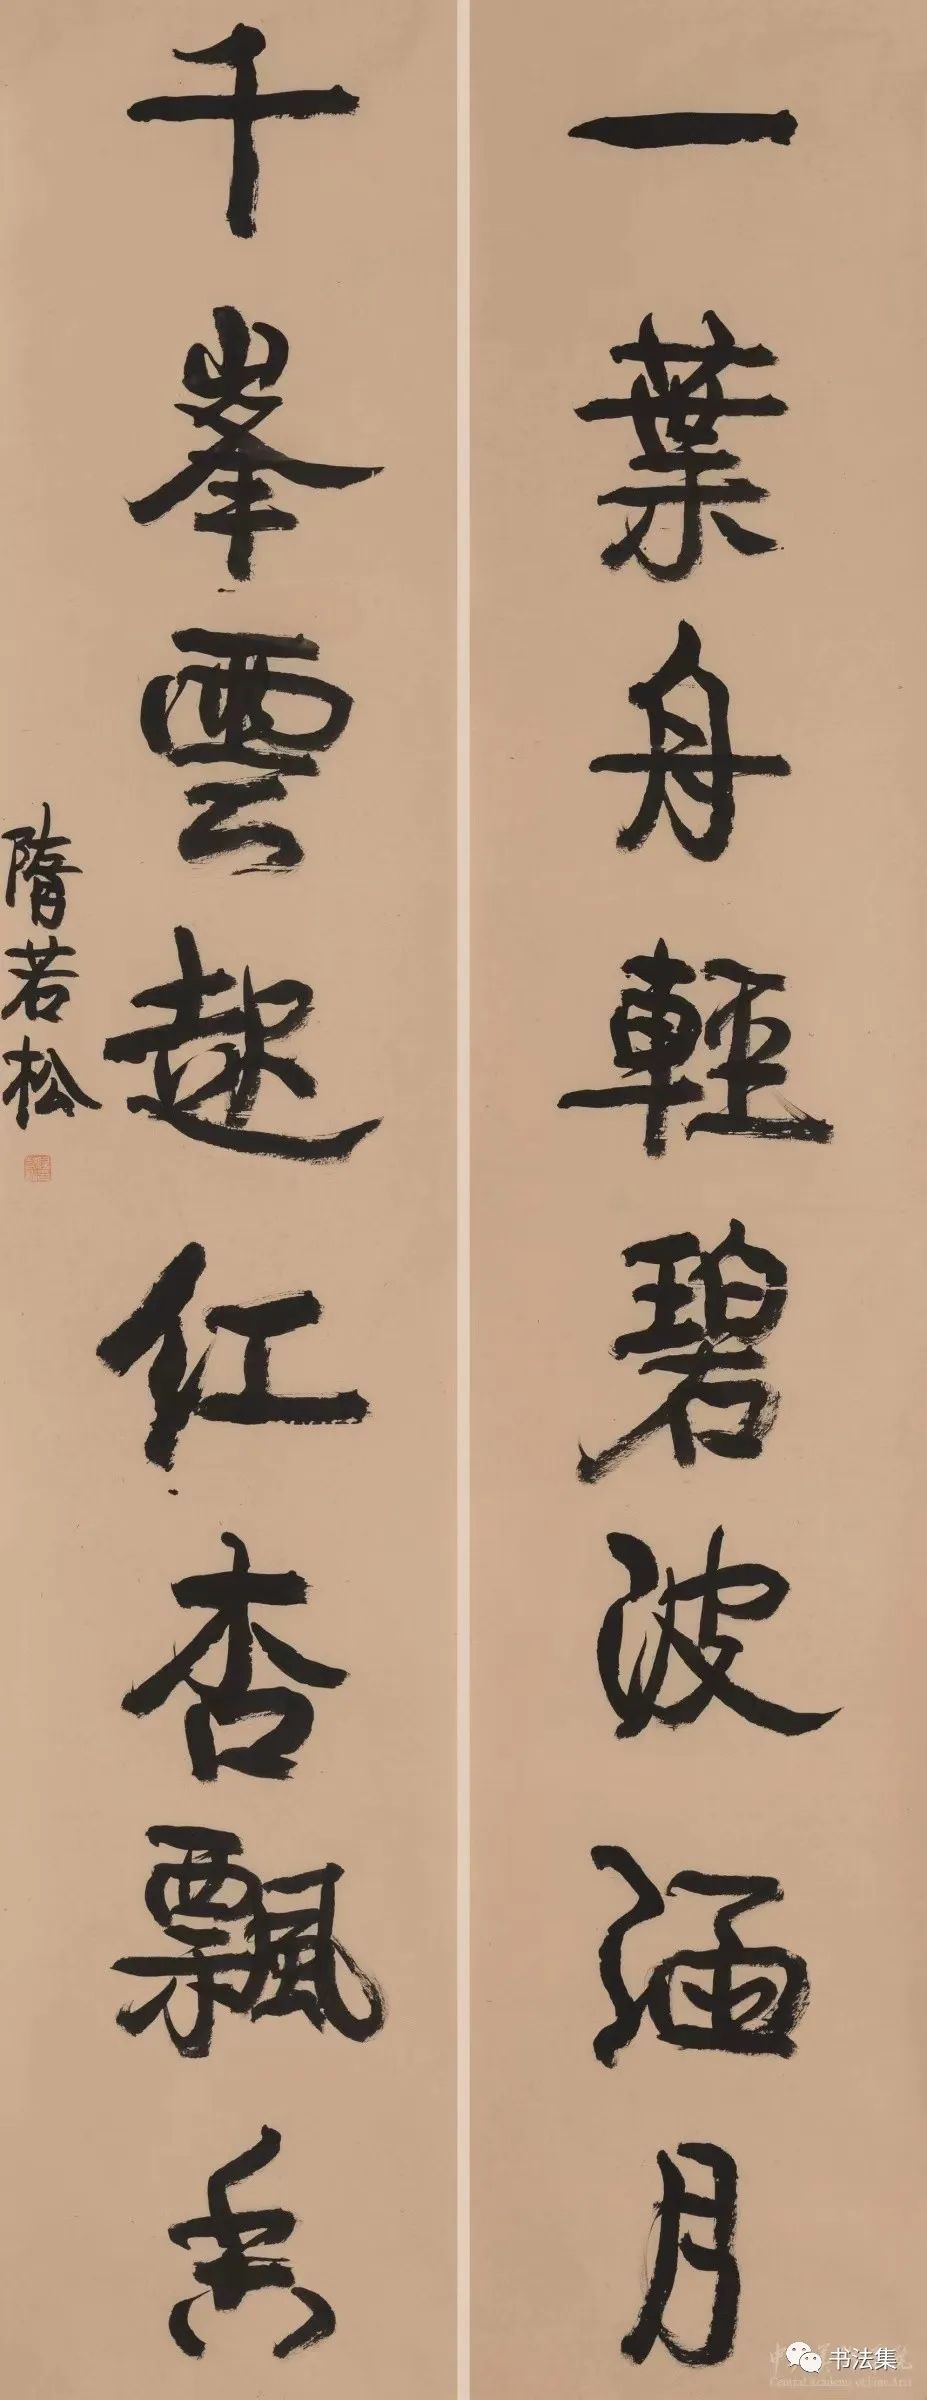 一葉舟輕碧波涵月
千峯雲起红杏飄香
隋若松
书法集
Central Academy of Fine Arts